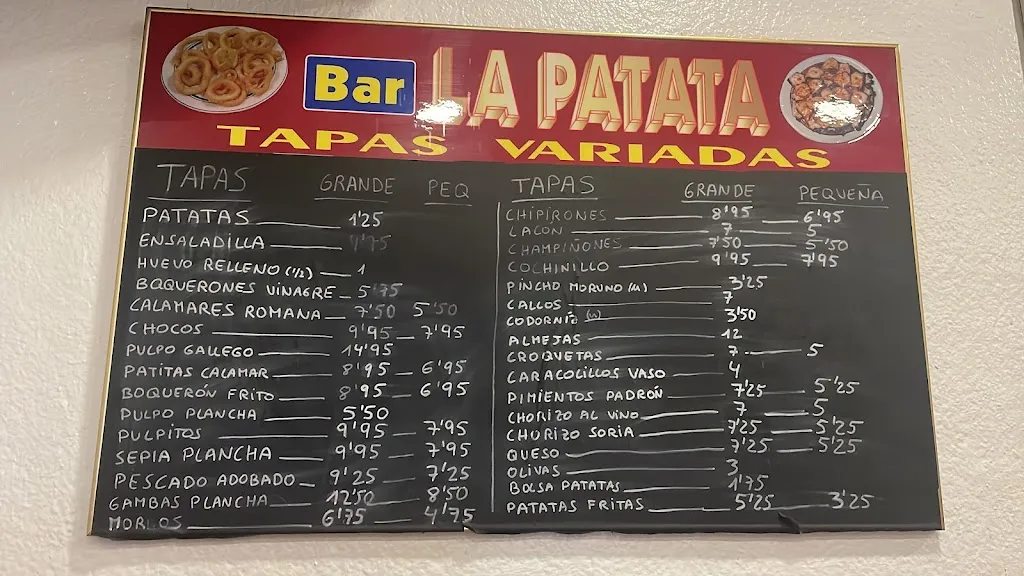 Bar LA PATATA
TAPAS VARIADAS
TAPAS GRANDE PEQ
PATATAS 1'25
ENSALADILLA
HUEVO RELLENO (1/2) 1
BOQUERONES VINAGRE 5'75
CALAMARES ROMANA 7'50 5'50
CHOCOS 9'95 7'95
PULPO GALLEGO 14'95
PATITAS CALAMAR 8'95 6'95
BOQUERÓN FRITO 8'95 6'95
PULPO PLANCHA 5'50
PULPITOS 9'95 7'95
SEPIA PLANCHA 9'95 7'95
PESCADO ADOBADO 9'25 7'25
GAMBAS PLANCHA 12'50 8'50
MORROS 6'75 4'75
TAPAS GRANDE PEQUEÑA
CHIPIRONES 8'95 6'95
LACÓN 7 5
CHAMPIÑONES 7'50 5'50
COCHINILLO 9'95 7'95
PINCHO MORUNO 3'25
CALLOS 7
CODORNIZ 3'50
ALMEJAS 12
CROQUETAS 7 5
CARACOLILLOS VASO 4
PIMIENTOS PADRÓN 7'25 5'25
CHORIZO AL VINO 7 5
CHORIZO SORIA 7'25 5'25
QUESO 7'25 5'25
OLIVAS 3
BOLSA PATATAS 1'75
PATATAS FRITAS 5'25 3'25